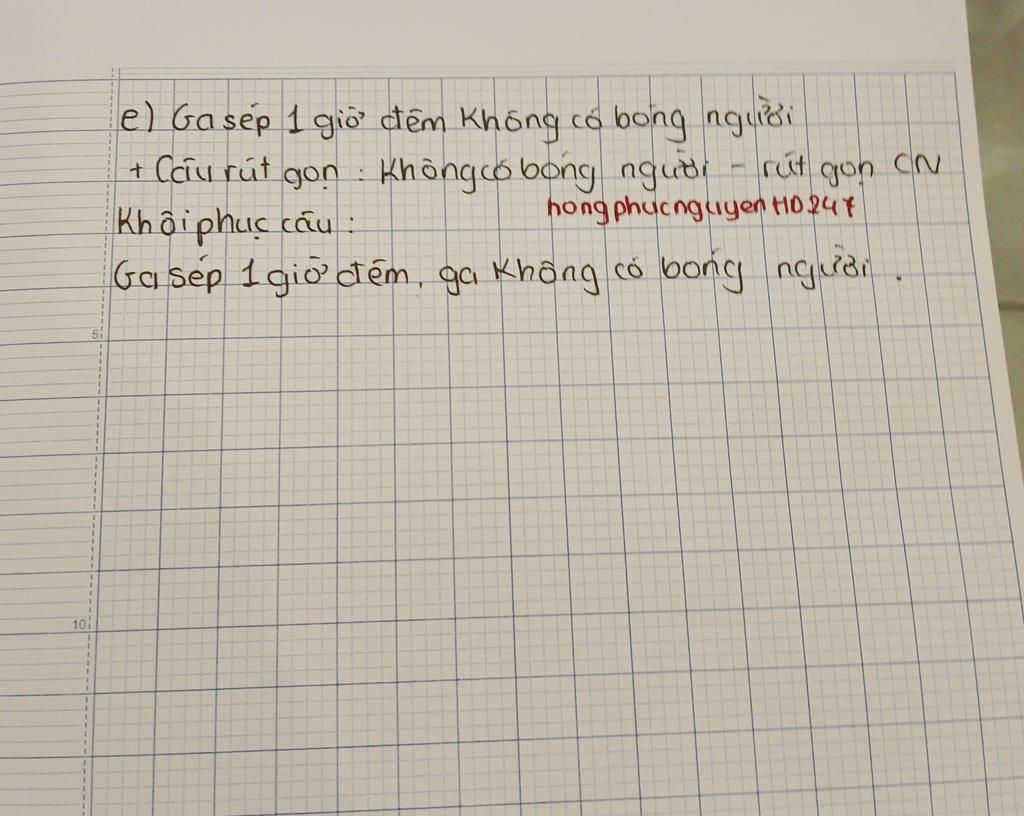 e) Ga sép 1 giờ đêm không có bóng người
+ Câu rút gọn : không có bóng người - rút gọn CN
hongphucnguyenHD247
Khôi phục câu :
Ga sép 1 giờ đêm, ga không có bóng người .
5
10